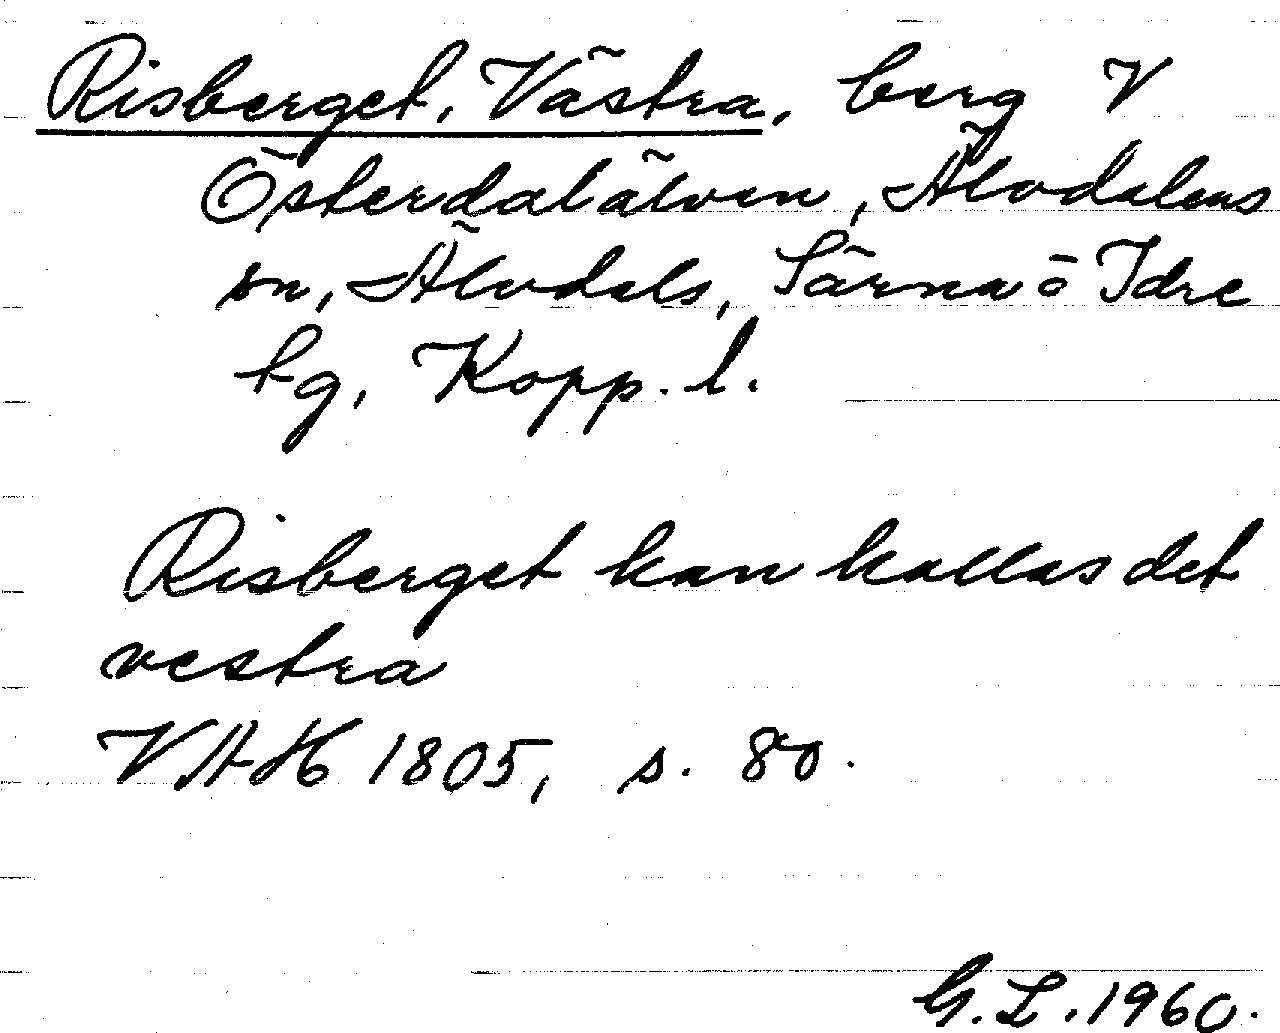 Risberget, Västra, berg V
Österdalälven, Älvdalens
sn, Älvdals, Särna o Idre
tg, Kopp. l.
Risberget kan kallas det
vestra
VAH 1805, s. 80.
G.L. 1960.